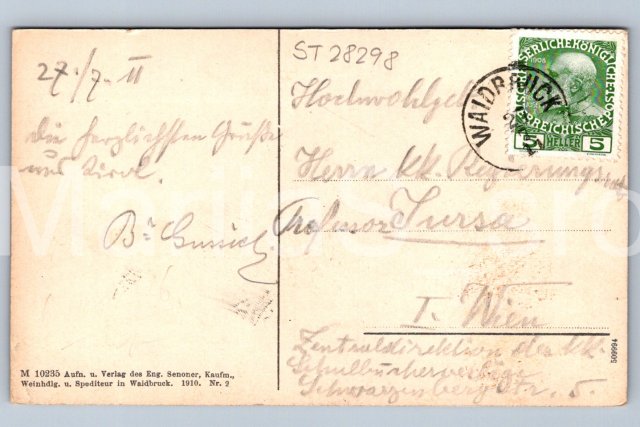 ST 28298
27./7. II
Die herzlichsten Grüße
aus Tirol.
Hochwohlgeb
Herrn k.k. Regierungsrat
Professor Jursa
I. Wien
Zentraldirektion der k.k.
Schulbücherverlage
Schwarzenbergstr. 5.
KAISERLICHE KÖNIGLICHE
ÖSTERREICHISCHE POST
1908
5 HELLER 5
WAIDBRUCK
M 10235 Aufn. u. Verlag des Eng. Senoner, Kaufm.,
Weinhdlg. u. Spediteur in Waidbruck. 1910. Nr. 2
509994